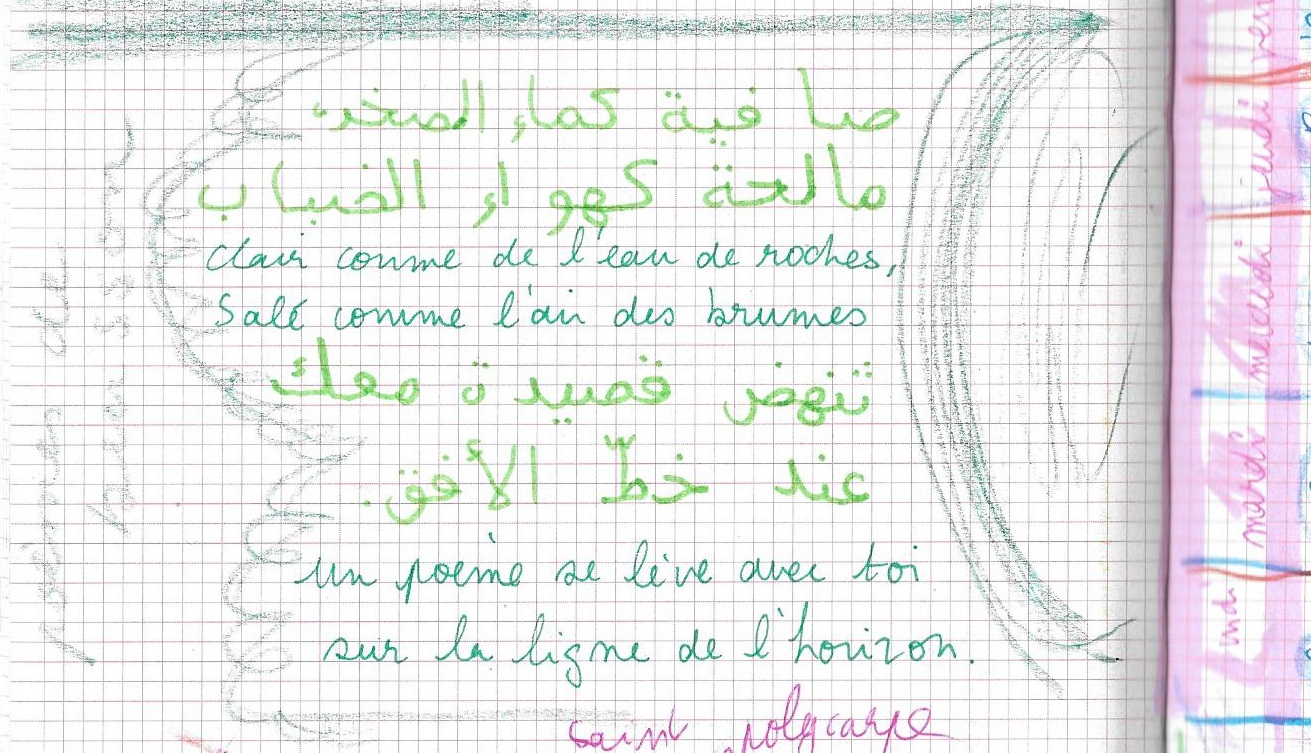 صافية كماء الصخر،
مالحة كهواء الضباب
Clair comme de l'eau de roches,
Salé comme l'air des brumes
تنهض قصيدة معك
عند خطّ الأفق.
un poème se lève avec toi
sur la ligne de l'horizon.
saint polycarpe
lundi mardi mercredi jeudi ven